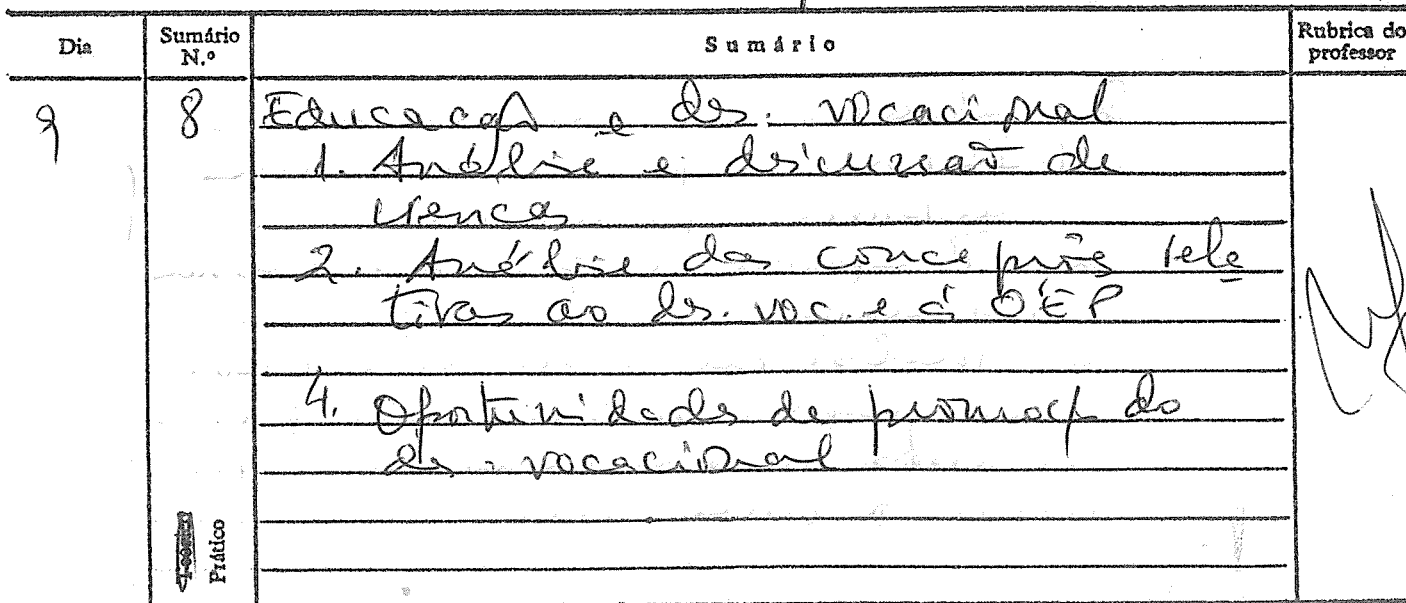 Dia Sumário N.º Sumário Rubrica do professor
9 8 Educação e ds. vocacional
1. Análise e discussão de
crenças
2. Análise das concepções rela
tivas ao ds. voc. e à OEP
4. Oportunidades de promoção do
ds. vocacional
Prático